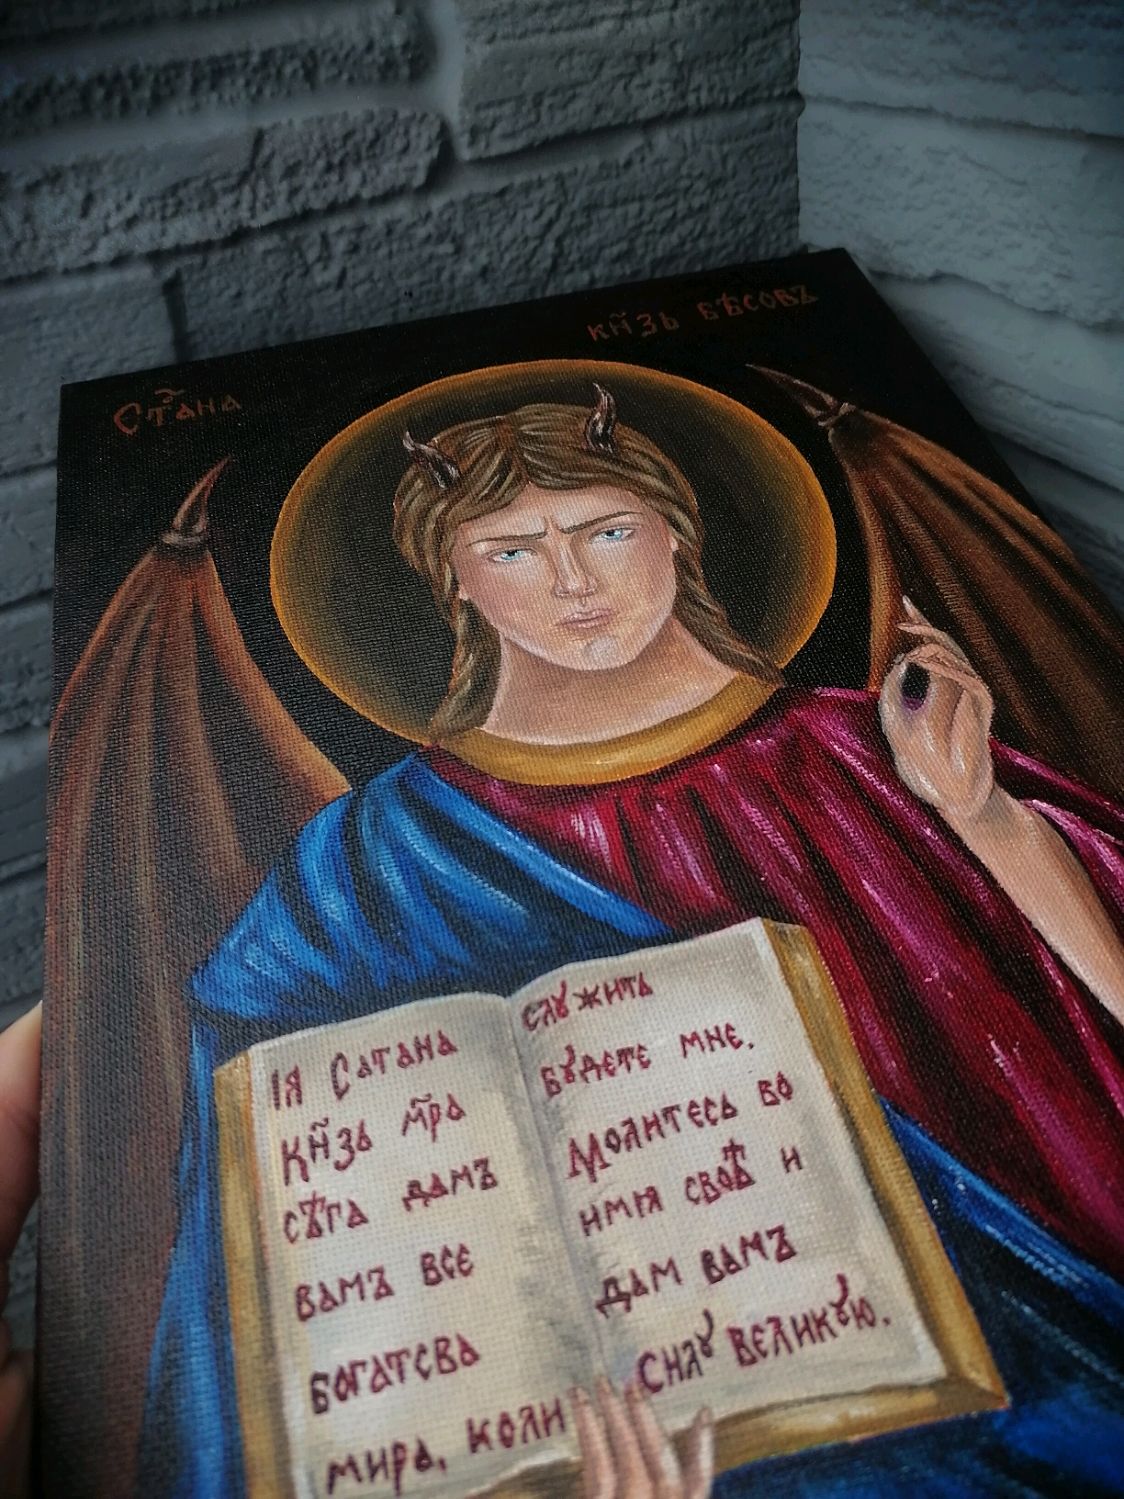 Ст҃ана
кн҃зь бѣсовъ
IѦ Сатана
кн҃зь м҃ра
сѣга дамъ
вамъ все
богатсва
мира, коли
слꙋжить
бꙋдете мне.
Молитесь во
имѧ своѣ и
дам вамъ
силꙋ великꙋю.